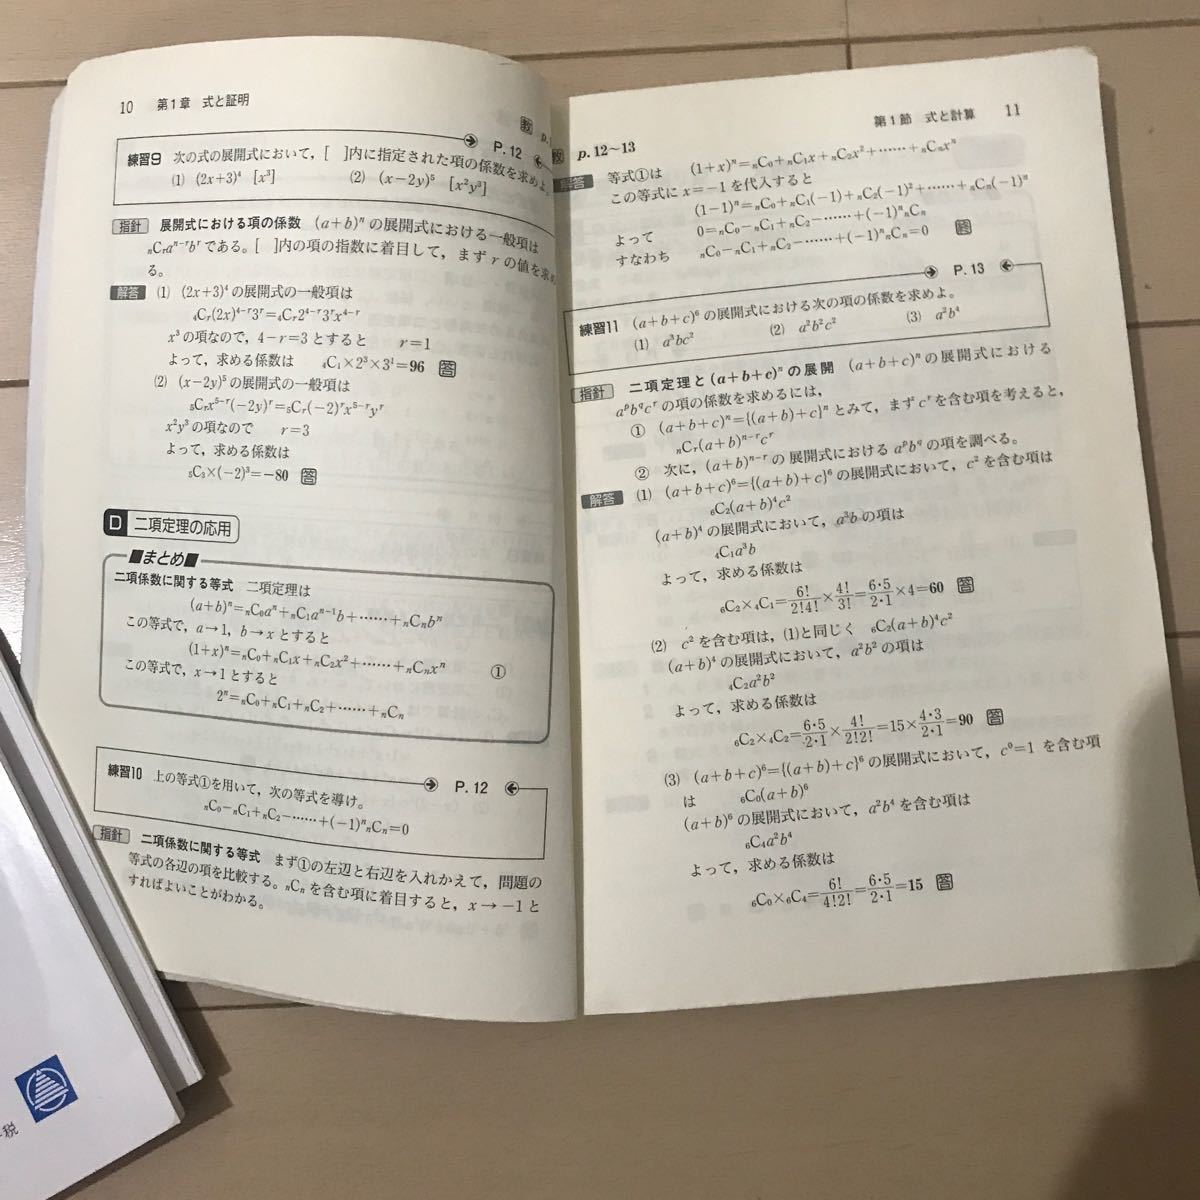 10 第1章 式と証明
教 p.
P.12
練習9 次の式の展開式において，[ ]内に指定された項の係数を求めよ。
(1) (2x+3)⁴ [x³] (2) (x−2y)⁵ [x²y³]
指針 展開式における項の係数 (a+b)ⁿ の展開式における一般項は
ₙCᵣaⁿ⁻ʳbʳ である。[ ]内の項の指数に着目して，まず r の値を求め
る。
解答 (1) (2x+3)⁴ の展開式の一般項は
₄Cᵣ(2x)⁴⁻ʳ3ʳ=₄Cᵣ2⁴⁻ʳ3ʳx⁴⁻ʳ
x³ の項なので，4−r=3とすると r=1
よって，求める係数は ₄C₁×2³×3¹=96 答
(2) (x−2y)⁵ の展開式の一般項は
₅Cᵣx⁵⁻ʳ(−2y)ʳ=₅Cᵣ(−2)ʳx⁵⁻ʳyʳ
x²y³ の項なので r=3
よって，求める係数は
₅C₃×(−2)³=−80 答
D 二項定理の応用
■まとめ■
二項係数に関する等式 二項定理は
(a+b)ⁿ=ₙC₀aⁿ+ₙC₁aⁿ⁻¹b+……+ₙCₙbⁿ
この等式で，a→1，b→x とすると
(1+x)ⁿ=ₙC₀+ₙC₁x+ₙC₂x²+……+ₙCₙxⁿ ①
この等式で，x→1 とすると
2ⁿ=ₙC₀+ₙC₁+ₙC₂+……+ₙCₙ
P.12
練習10 上の等式①を用いて，次の等式を導け。
ₙC₀−ₙC₁+ₙC₂−……+(−1)ⁿₙCₙ=0
指針 二項係数に関する等式 まず①の左辺と右辺を入れかえて，問題の
等式の各辺の項を比較する。ₙCₙ を含む項に着目すると，x→−1 と
すればよいことがわかる。
第1節 式と計算 11
教 p.12～13
解答 等式①は (1+x)ⁿ=ₙC₀+ₙC₁x+ₙC₂x²+……+ₙCₙxⁿ
この等式に x=−1 を代入すると
(1−1)ⁿ=ₙC₀+ₙC₁(−1)+ₙC₂(−1)²+……+ₙCₙ(−1)ⁿ
よって 0=ₙC₀−ₙC₁+ₙC₂−……+(−1)ⁿₙCₙ
すなわち ₙC₀−ₙC₁+ₙC₂−……+(−1)ⁿₙCₙ=0 終
P.13
練習11 (a+b+c)⁶ の展開式における次の項の係数を求めよ。
(1) a³bc² (2) a²b²c² (3) a²b⁴
指針 二項定理と(a+b+c)ⁿ の展開 (a+b+c)ⁿ の展開式における
aᵖb^qcʳ の項の係数を求めるには，
① (a+b+c)ⁿ={(a+b)+c}ⁿ とみて，まず cʳ を含む項を考えると，
ₙCᵣ(a+b)ⁿ⁻ʳcʳ
② 次に，(a+b)ⁿ⁻ʳ の展開式における aᵖb^q の項を調べる。
解答 (1) (a+b+c)⁶={(a+b)+c}⁶ の展開式において，c² を含む項は
₆C₂(a+b)⁴c²
(a+b)⁴ の展開式において，a³b の項は
₄C₁a³b
よって，求める係数は
₆C₂×₄C₁=6!/2!4!×4!/3!=6・5/2・1×4=60 答
(2) c² を含む項は，(1)と同じく ₆C₂(a+b)⁴c²
(a+b)⁴ の展開式において，a²b² の項は
₄C₂a²b²
よって，求める係数は
₆C₂×₄C₂=6・5/2・1×4!/2!2!=15×4・3/2・1=90 答
(3) (a+b+c)⁶={(a+b)+c}⁶ の展開式において，c⁰=1 を含む項
は ₆C₀(a+b)⁶
(a+b)⁶ の展開式において，a²b⁴ を含む項は
₆C₄a²b⁴
よって，求める係数は
₆C₀×₆C₄=6!/4!2!=6・5/2・1=15 答
税